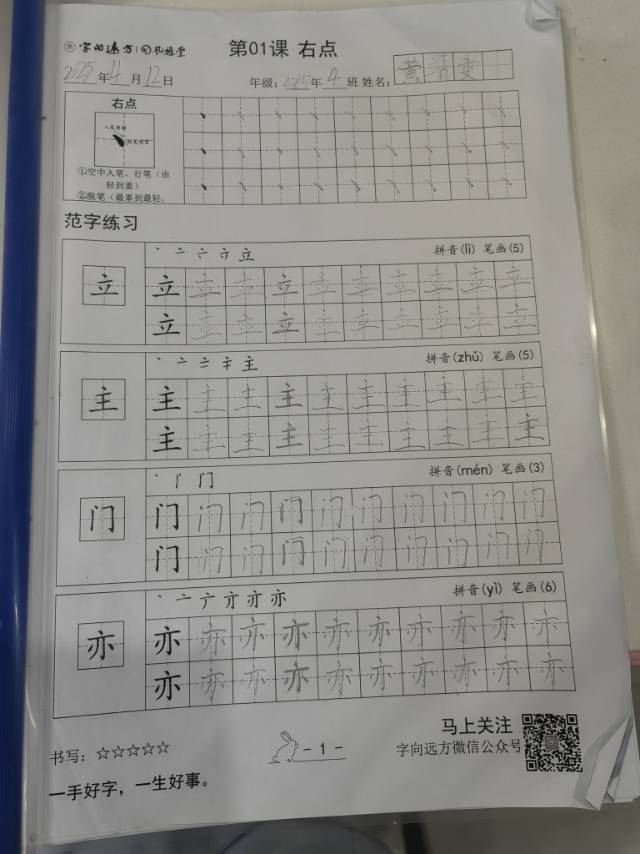 字向远方 第01课 右点
2025年4月12日 年级：2025年4班 姓名：黄靖雯
右点
①空中入笔、行笔（由
轻到重）
②脱笔（最重到最轻，
范字练习
丶 亠 立 拼音(lì) 笔画(5)
立 立 立 立 立 立 立 立 立 立 立
立 立 立 立 立 立 立 立 立 立
丶 亠 主 拼音(zhǔ) 笔画(5)
主 主 主 主 主 主 主 主 主 主 主
主 主 主 主 主 主 主 主 主 主
丶 门 拼音(mén) 笔画(3)
门 门 门 门 门 门 门 门 门 门 门
门 门 门 门 门 门 门 门 门 门
丶 亠 亦 拼音(yì) 笔画(6)
亦 亦 亦 亦 亦 亦 亦 亦 亦 亦 亦
亦 亦 亦 亦 亦 亦 亦 亦 亦 亦
书写：☆☆☆☆☆ - 1 - 马上关注
字向远方微信公众号
一手好字，一生好事。